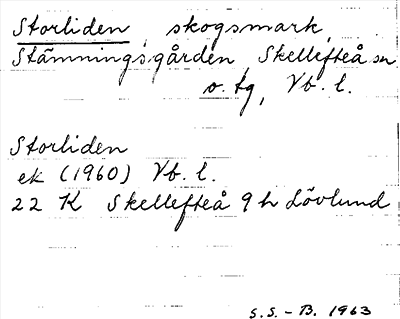 Storliden, skogsmark,
Stämningsgården, Skellefteå sn
o. tg, Vb. l.
Storliden
ek (1960) Vb. l.
22 K Skellefteå 9 h Lövlund
S.S. - B. 1963